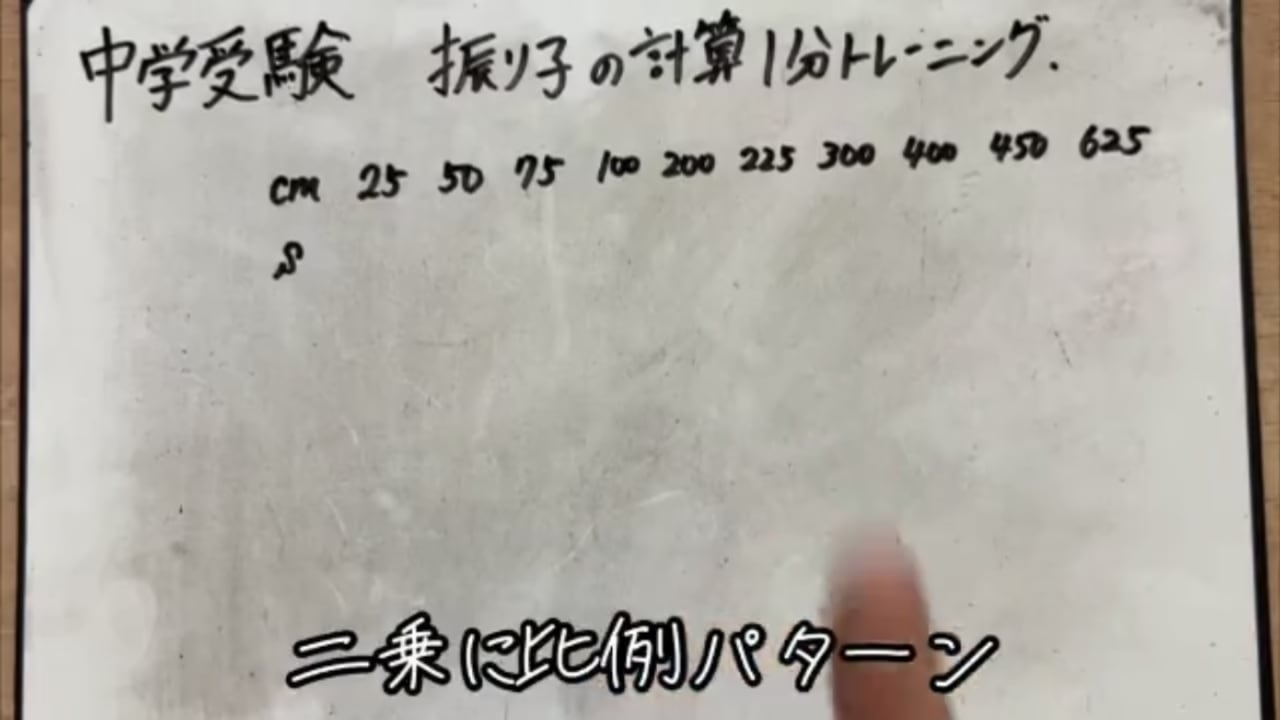 中学受験 振り子の計算1分トレーニング.
cm 25 50 75 100 200 225 300 400 450 625
s
二乗に比例パターン